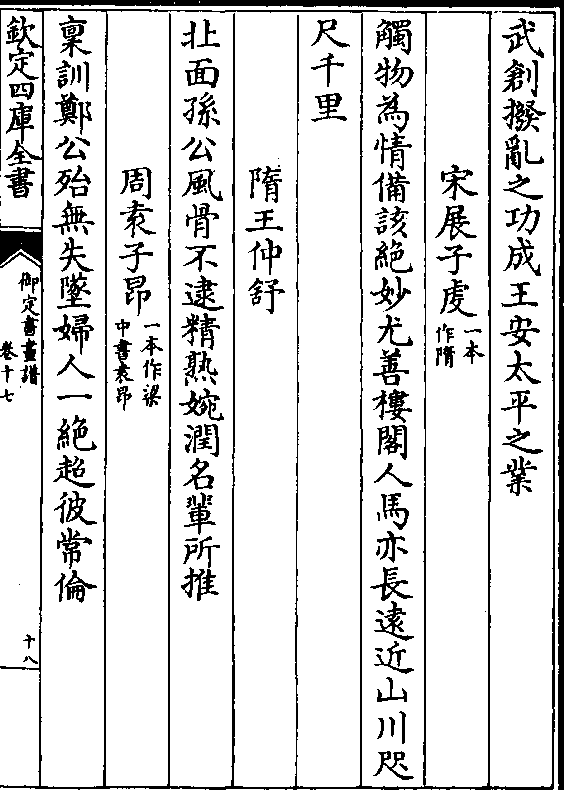 武創撥亂之功成王安太平之業
宋展子虔一本作隋
觸物為情備該絶妙尤善樓閣人馬亦長逺近山川咫
尺千里
隋王仲舒
北面孫公風骨不逮精熟婉潤名輩所推
周袁子昂一本作梁中書袁昂
稟訓鄭公殆無失墜婦人一絶超彼常倫
欽定四庫全書
御定書畫譜
卷十七
十八